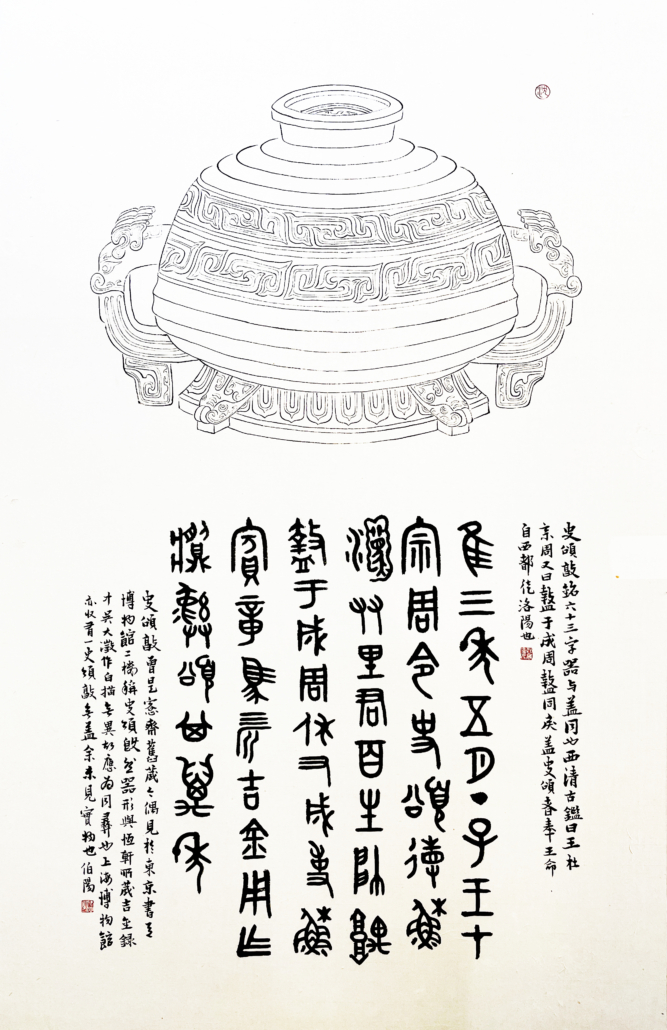 史頌敦銘六十三字器与蓋同也西清古鑑曰王在
宗周又曰盩于成周盩同戾蓋史頌春奉王命
自西都徂洛陽也
隹三年五月丁子王才
宗周令史頌德穌
灋友里君百生帥
盩于成周休又成事穌
賓章馬三吉金用乍
彝頌其萬年
史頌敦曾是愙齋舊藏今偶見於東京書道
博物館二樓稱史頌𣪘然器形與恆軒所藏吉金錄
中吳大澂作白描無異故應為同彝也上海博物館
亦收有一史頌敦無蓋余未見實物也伯陽